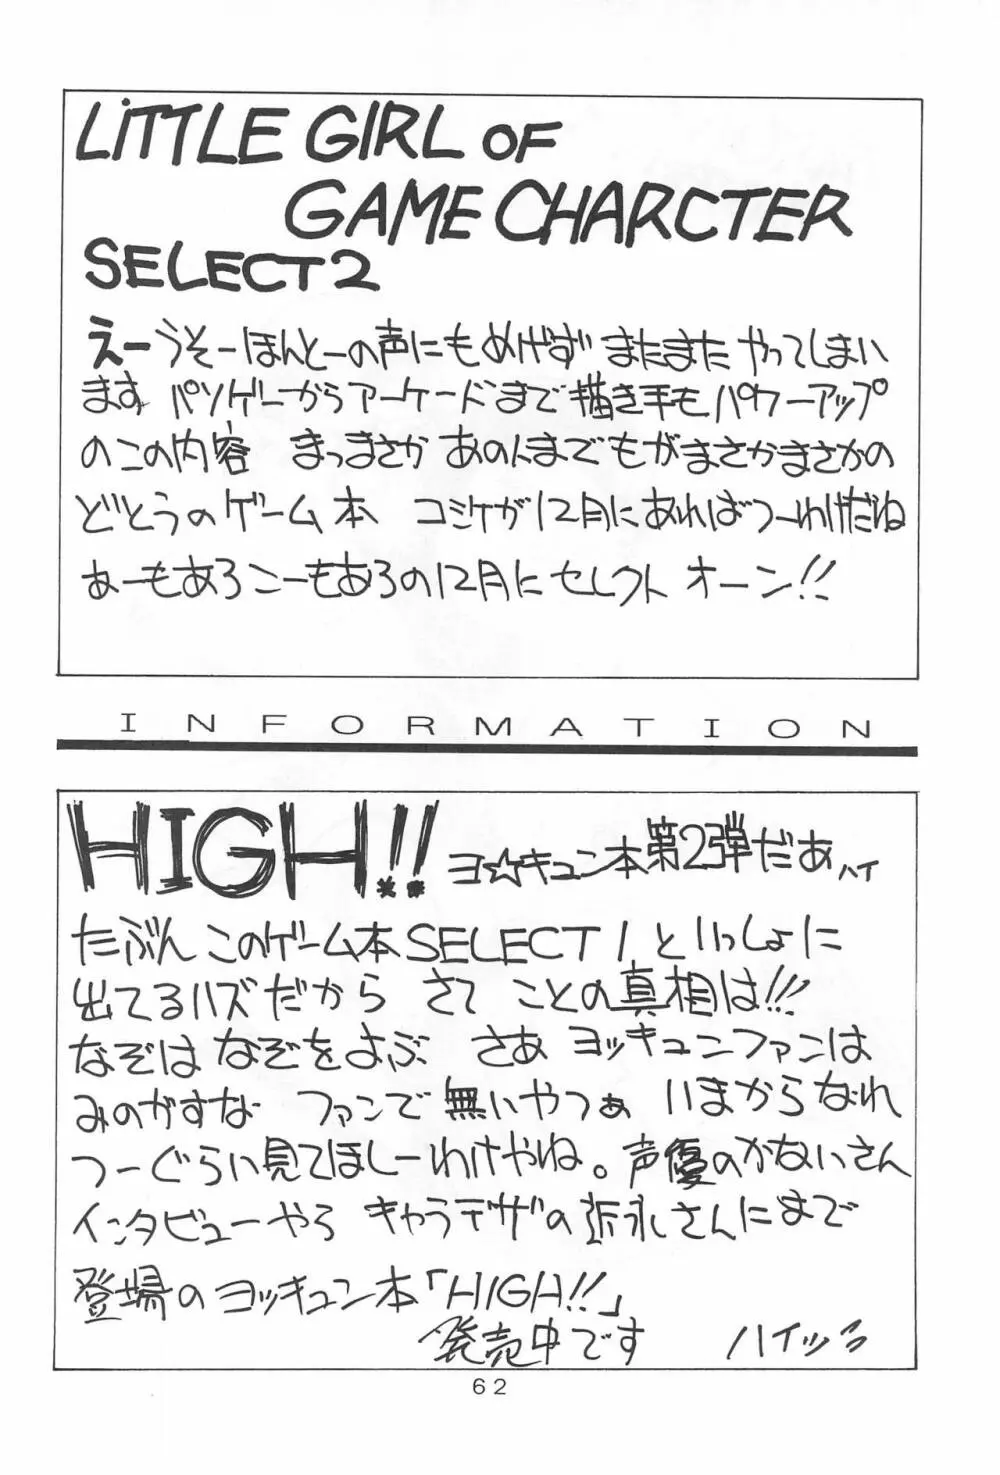 LiTTLE GIRL OF
GAME CHARCTER
SELECT2
えーうそーほんとーの声にもめげず またまた やってしまい
ます パソゲーからアーケードまで描き手もパワーアップ
のこの内容 まっまさか あの人までもがまさかまさかの
どとうのゲーム本 コミケが12月にあればつーわけだね
あーもあろこーもあろの12月に セレクト オーン!!
INFORMATION
HIGH!! ヨ☆キュン本第2弾だぁ ハイ
たぶん このゲーム本SELECT1 といっしょに
出てるハズだから さて ことの真相は!!!
なぞは なぞをよぶ さあ ヨッキュンファンは
みのがすな ファンで 無いやつぁ いまからなれ
つーぐらい見てほしーわけやね。声優のかないさん
インタビューやら キャラデザの 永さんにまで
登場のヨッキュン本「HIGH!!」
発売中です ハイッ
62